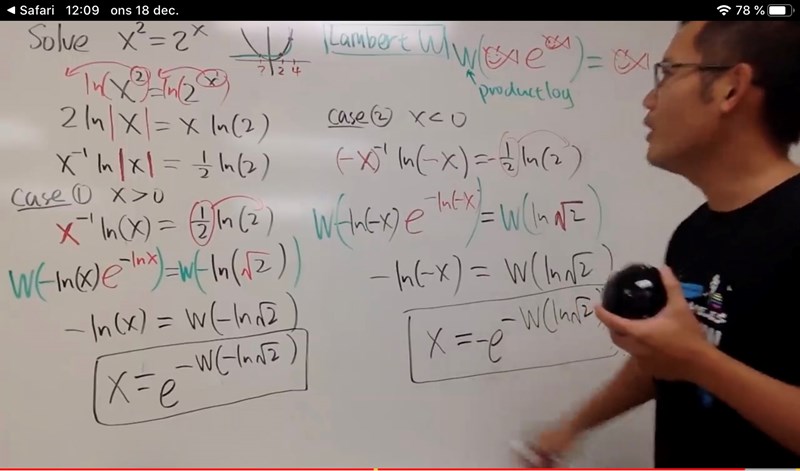 Safari 12:09 ons 18 dec. 78 %
Solve x² = 2ˣ
? 2 4
ln(x²) = ln(2ˣ)
2 ln|x| = x ln(2)
x⁻¹ ln|x| = ½ ln(2)
case ① x > 0
x⁻¹ ln(x) = ½ ln(2)
W(-ln(x) e^(-lnx)) = W(-ln(√2))
-ln(x) = W(-ln√2)
x = e^(-W(-ln√2))
Lambert W W( e ) =
productlog
case ② x < 0
(-x)⁻¹ ln(-x) = -½ ln(2)
W(-ln(-x) e^(-ln(-x))) = W(ln √2)
-ln(-x) = W(ln√2)
x = -e^(-W(ln√2))